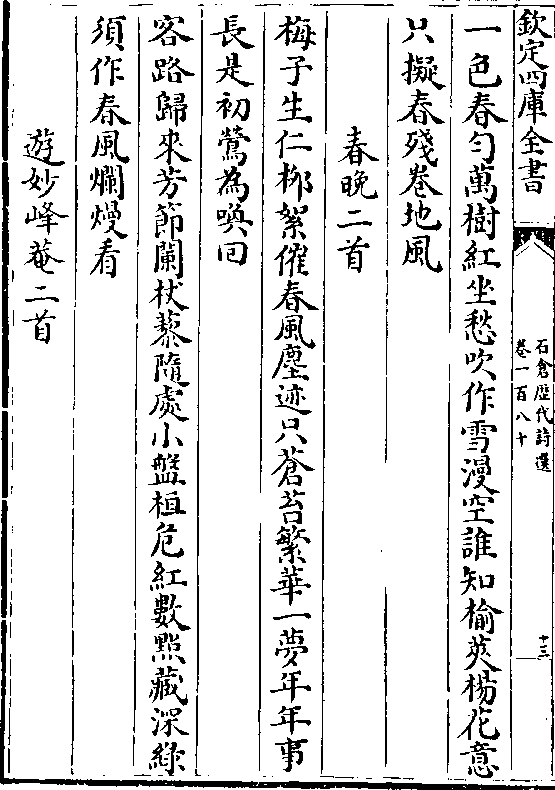 欽定四庫全書
石倉歴代詩選
卷一百八十
十三
一色春勻萬樹紅坐愁吹作雪漫空誰知榆莢楊花意
只擬春殘卷地風
春晚二首
梅子生仁柳絮催春風塵迹只蒼苔繁華一夢年年事
長是初鶯為喚回
客路歸來芳節闌杖藜隨處小盤桓危紅數點藏深綠
須作春風爛熳看
遊妙峰菴二首